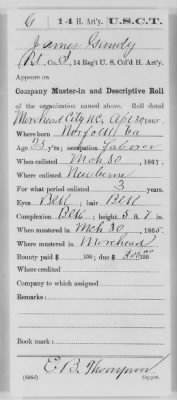 G 14 H. Art'y. U.S.C.T.
James Gandy
Pvt, Co. D, 14 Reg't U. S. Col'd H. Art'y.
Appears on
Company Muster-in and Descriptive Roll
of the organization named above. Roll dated
Morehead City NC, Apl 30, 1865.
Where born Norfolk Va
Age 23 y'rs; occupation Laborer
When enlisted Mch 30, 1865.
Where enlisted Newberne
For what period enlisted 3 years.
Eyes Blk; hair Blk
Complexion Blk; height 5 ft. 7 in.
When mustered in Mch 30, 1865.
Where mustered in Morehead
Bounty paid $ 100; due $ 100
Where credited
Company to which assigned
Remarks:
Book mark:
E. B. Thompson
Copyist.